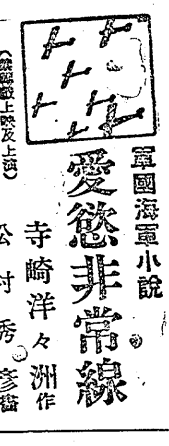 軍國海軍小說
愛慾非常線
寺崎洋々洲作
松村秀彦畫
(無斷上映及上演)